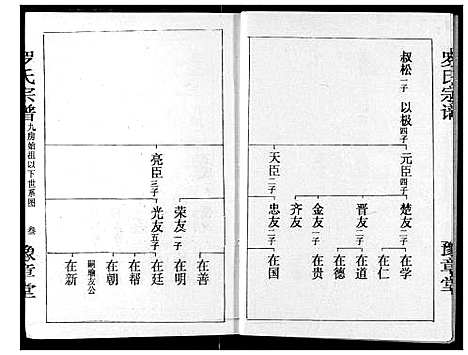 罗氏宗谱
豫章堂
叔松 一子
以极 四子
元臣 四子
天臣 二子
楚友 二子
晋友 二子
金友 一子
齐友
忠友 一子
在学
在仁
在道
在德
在贵
在国
亮臣 三子
荣友 一子
光友 五子
在善
在明
在廷
在帮
在朝
嗣瑜友公
在新
罗氏宗谱
九房始祖以下世系图
叁
豫章堂